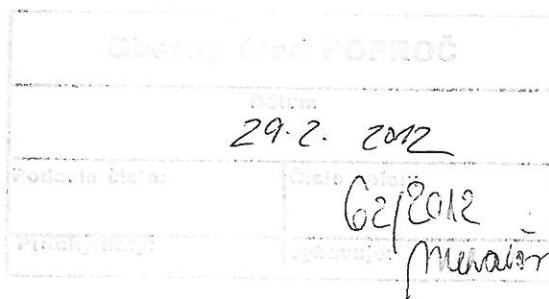 Obecný úrad POPROČ
Dátum
29.2. 2012
Podacie číslo: Číslo spisu:
62/2012
Prílohy/listy: Vybavuje: